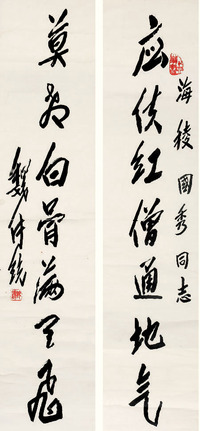 海稜國秀同志
应使红僧通地气
莫教白骨满天飞
魏传统